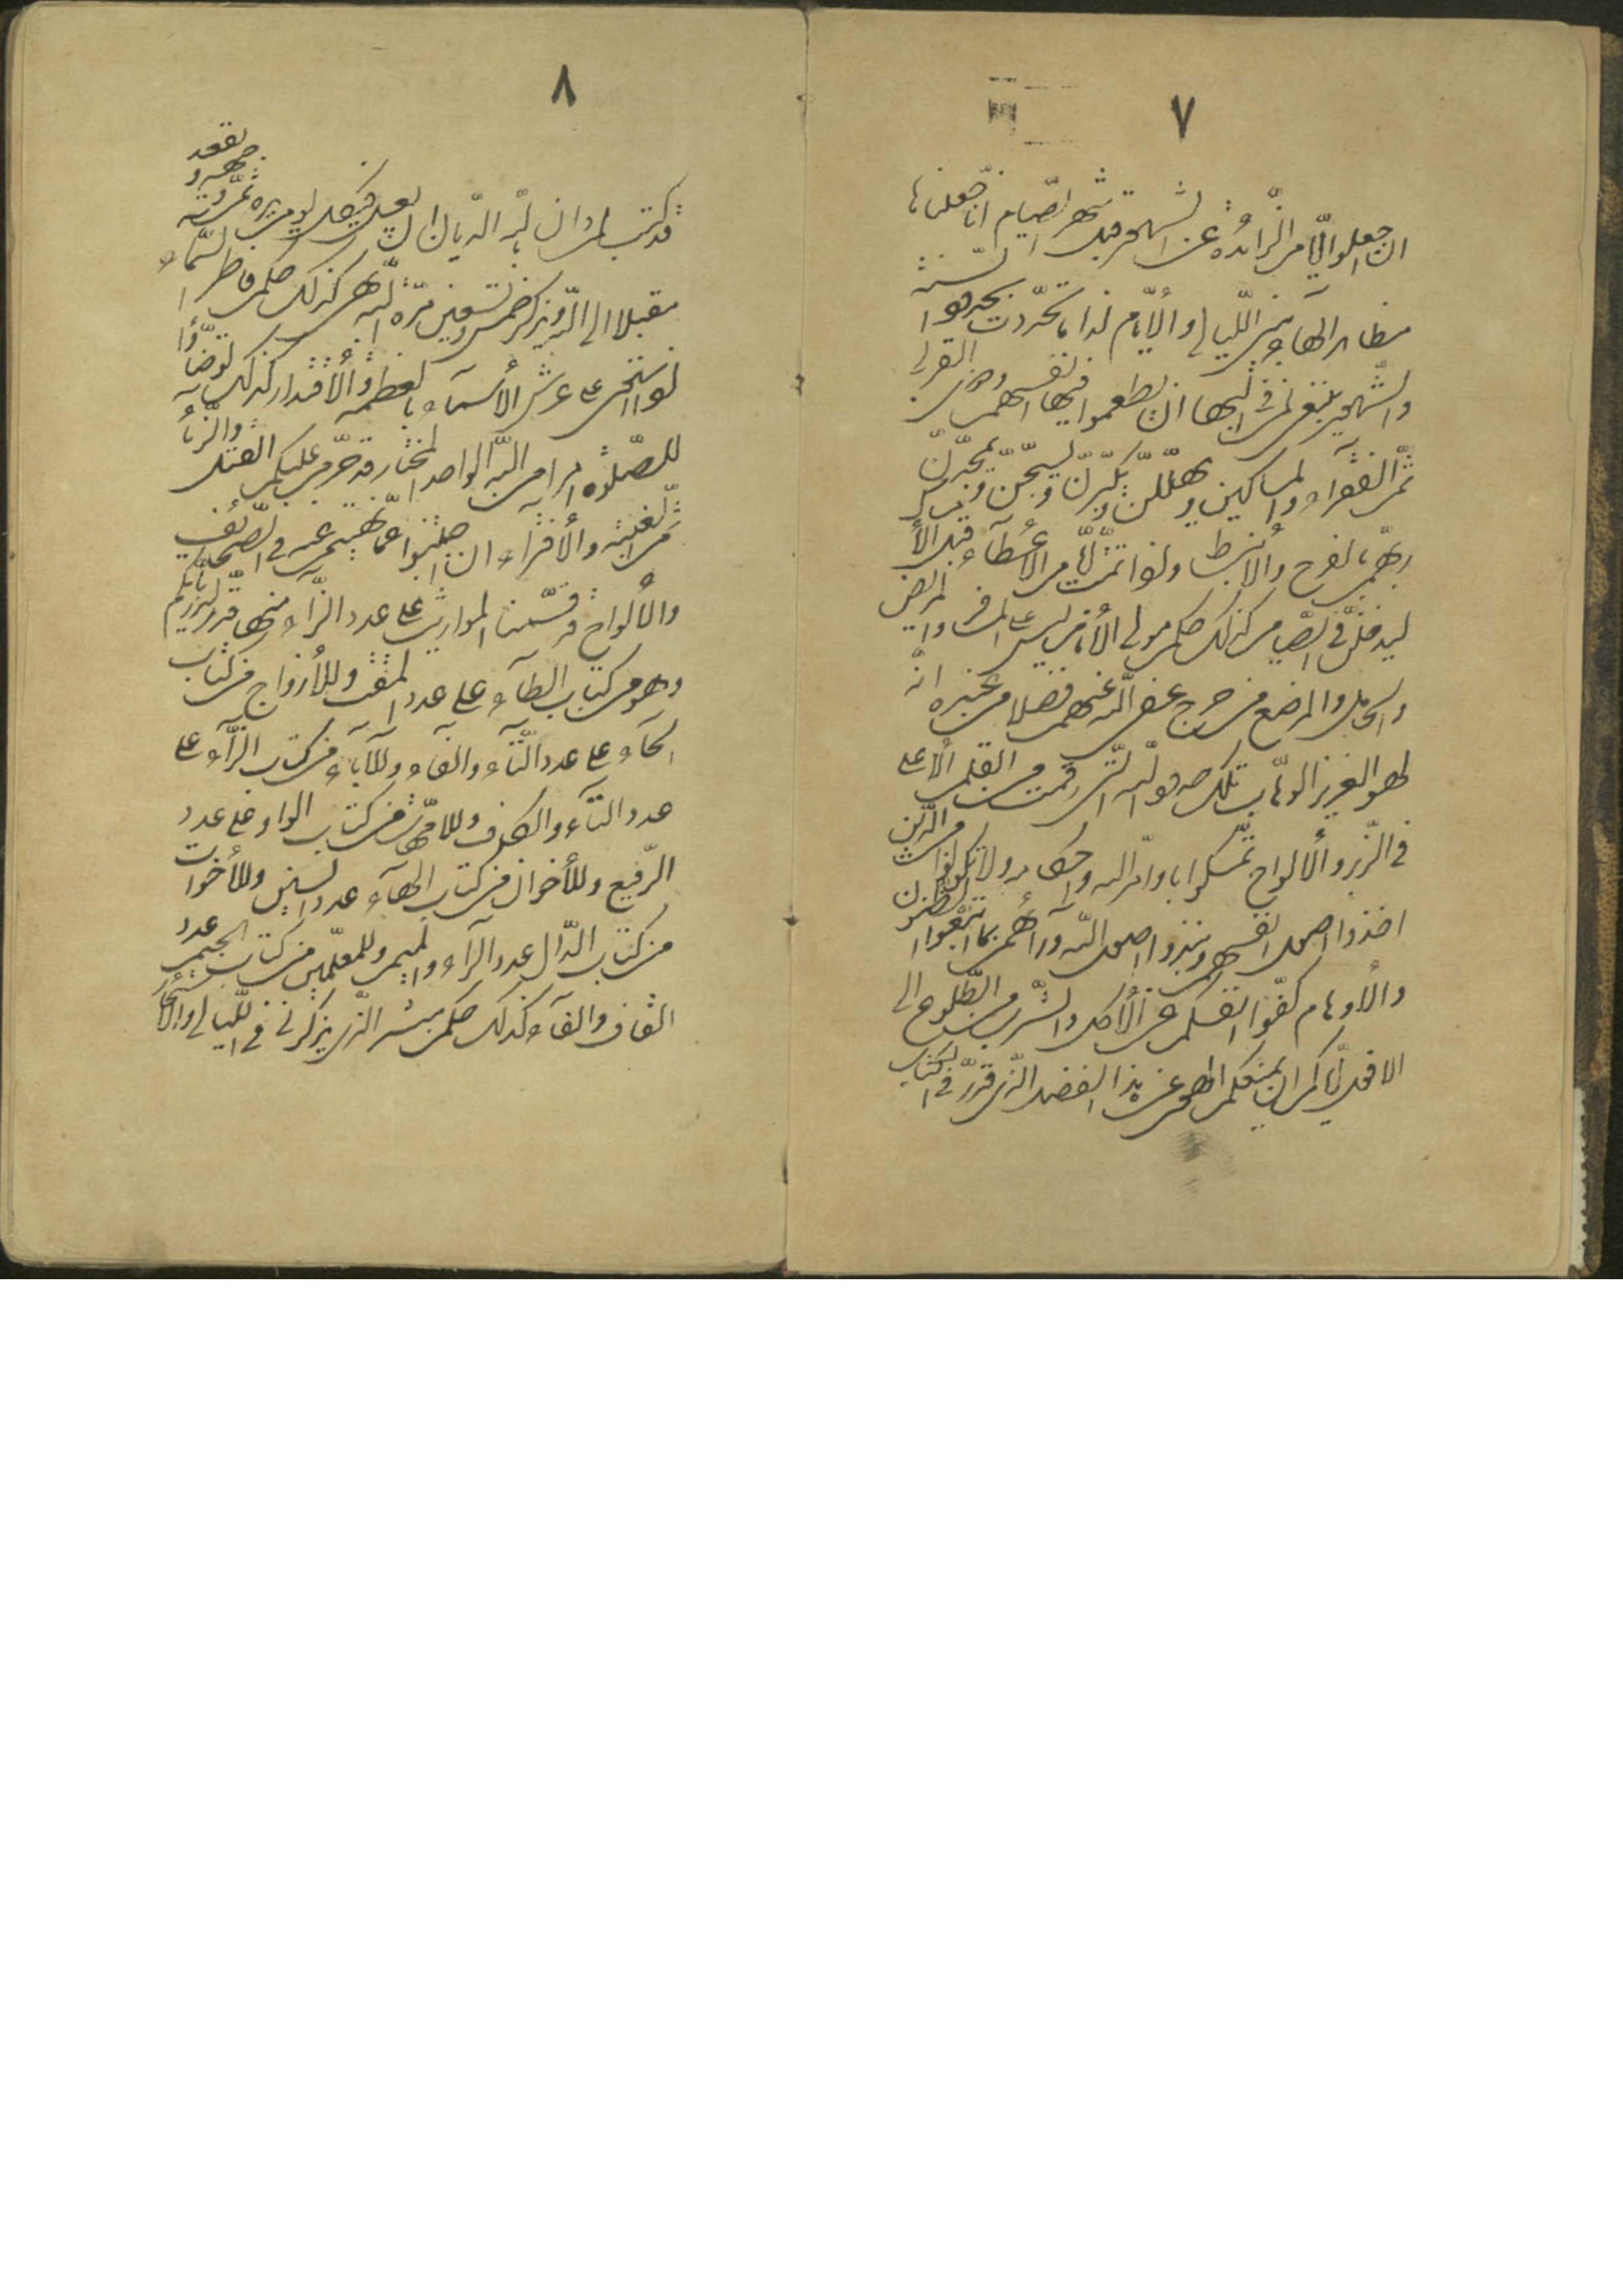 ٧
ان اجعلوا الايّام الزّآئدة عن الشّهور قبل شهر الصّيام انّا جعلناها
مظاهر الهآء بين اللّيالي و الأيّام لذا ما تحدّدت بحدود السّنة
و الشّهور ينبغي لمن في البهآء ان يطعموا فيها انفسهم و ذوي القربى
ثمّ الفقرآء و المساكين و يهلّلنّ و يكبّرنّ و يسبّحنّ و يمجّدنّ
ربّهم بالفرح و الأنبساط و اذا تمّت ايّام الأعطآء قبل الأمساك
ليدخلنّ في الصّيام كذلك حكم مولى الأنام ليس على المسافر و المريض
و الحامل و المرضع من حرج عفا اللّه عنهم فضلا من عنده انّه
لهو العزيز الوهّاب تلك حدود اللّه الّتي رقمت من القلم الأعلى
في الزّبر و الألواح تمسّكوا باوامر اللّه و احكامه و لا تكونوا من الّذين
اخذوا اصول انفسهم و نبذوا اصول اللّه ورآئهم بما اتّبعوا الظّنون
و الأوهام كفّوا انفسكم عن الأكل و الشّرب من الطّلوع الى
الافول ايّاكم ان يمنعكم الهوى عن هذا الفضل الّذي قدّر في الكتاب
٨
قد كتب لمن دان باللّه الدّيّان ان يغسل في كلّ يوم يديه ثمّ وجهه و يقعد
مقبلا الى اللّه و يذكر خمسا و تسعين مرّة اللّه ابهى كذلك حكم فاطر السّمآء
اذ استوى على عرش الأسمآء بالعظمة و الأقتدار كذلك توضّأوا
للصّلوة امرا من اللّه الواحد المختار قد حرّم عليكم القتل و الزّنا
ثمّ الغيبة و الأفترآء ان اجتنبوا عمّا نهيتم عنه في الصّحآئف
و الألواح قد قسّمنا المواريث على عدد الزّآء منها قدّر لذرّيّاتكم
من كتاب الطّآء على عدد المقت و للأزواج من كتاب
الحآء على عدد التّآء و الفآء و للآبآء من كتاب الزّآء على
عدد التّآء و الكاف و للامّهات من كتاب الواو على عدد
الرّفيع و للأخوان من كتاب الهآء عدد الشّين و للأخوات
من كتاب الدّال عدد الرّآء و الميم و للمعلّمين من كتاب الجيم عدد
القاف و الفآء كذلك حكم مبشّري الّذي يذكرني في اللّيالي و الأسحار